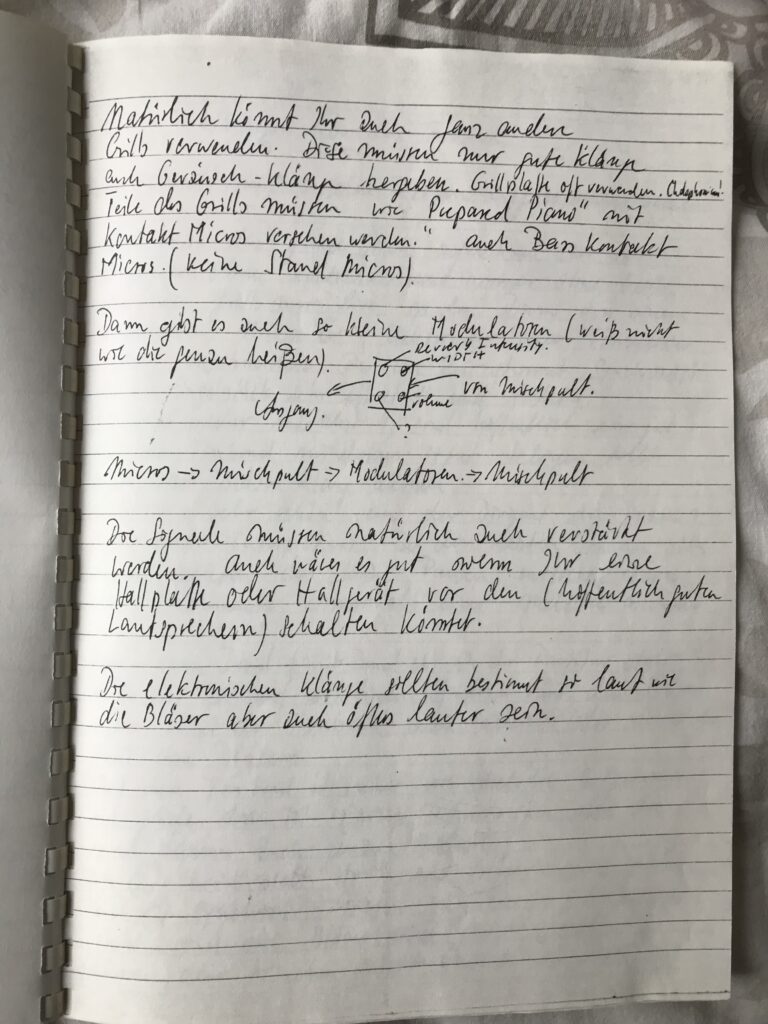 Natürlich könnt Ihr auch ganz andere
Grills verwenden. Diese müssen nur gute Klänge
auch Geräusch-Klänge hergeben. Grillplatte oft verwenden.
Teile des Grills müssen wie Prepared Piano" mit
Kontakt Micros versehen werden." auch Bass Kontakt
Micros. (Keine Stand Micros).
Dann gibt es auch so kleine Modulatoren (weiß nicht
wie die genau heißen).
Intensity.
WIDTH
von Mischpult.
Ausgang.
?
Micros → Mischpult → Modulatoren. → Mischpult
Die Signale müssen natürlich auch verstärkt
werden. Auch wäre es gut wenn Ihr eine
Hallplatte oder Hallgerät vor den (hoffentlich guten
Lautsprechern) schalten könntet.
Die elektronischen Klänge sollten bestimmt so laut wie
die Bläser aber auch öfters lauter sein.